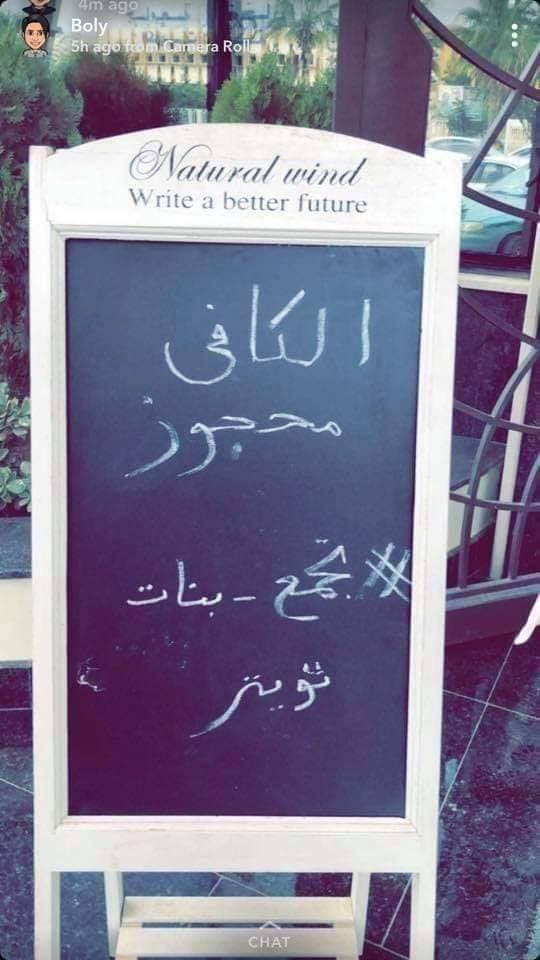 4m ago
Boly
5h ago from Camera Roll
Natural wind
Write a better future
الكافى
محجوز
#تجمع - بنات
تويتر
CHAT